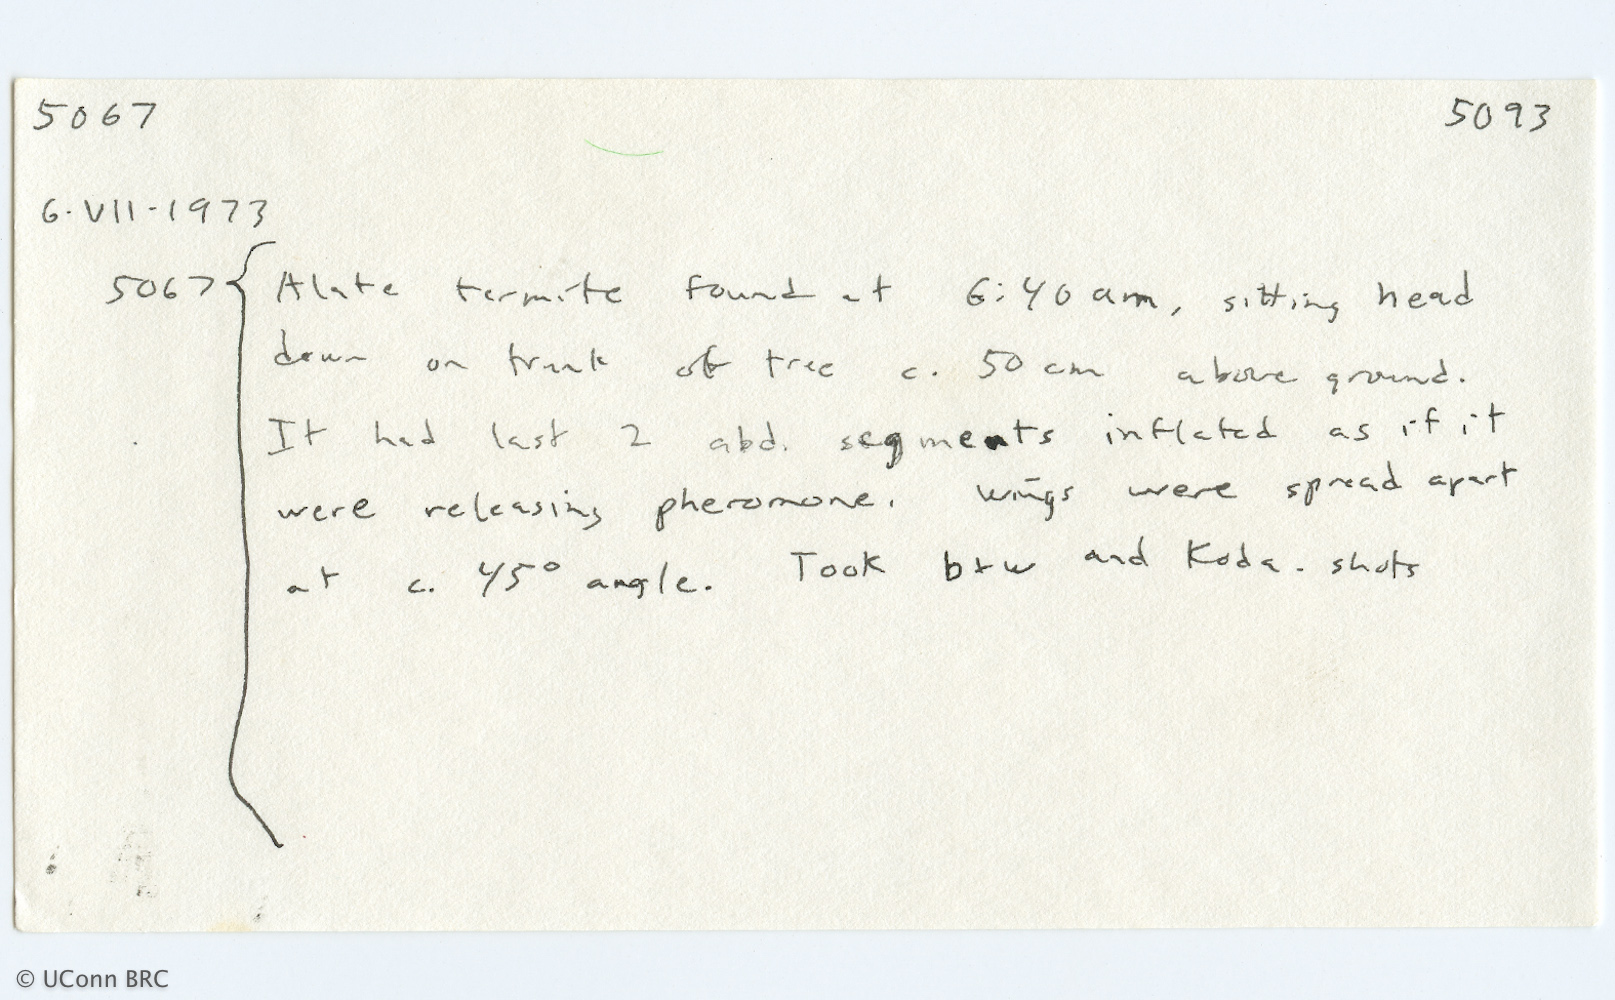 5067 5093
6·VII-1973
5067 { Alate termite found at 6:40 am, sitting head
down on trunk of tree c. 50 cm above ground.
It had last 2 abd. segments inflated as if it
were releasing pheromone. Wings were spread apart
at c. 45° angle. Took b+w and Koda. shots
© UConn BRC